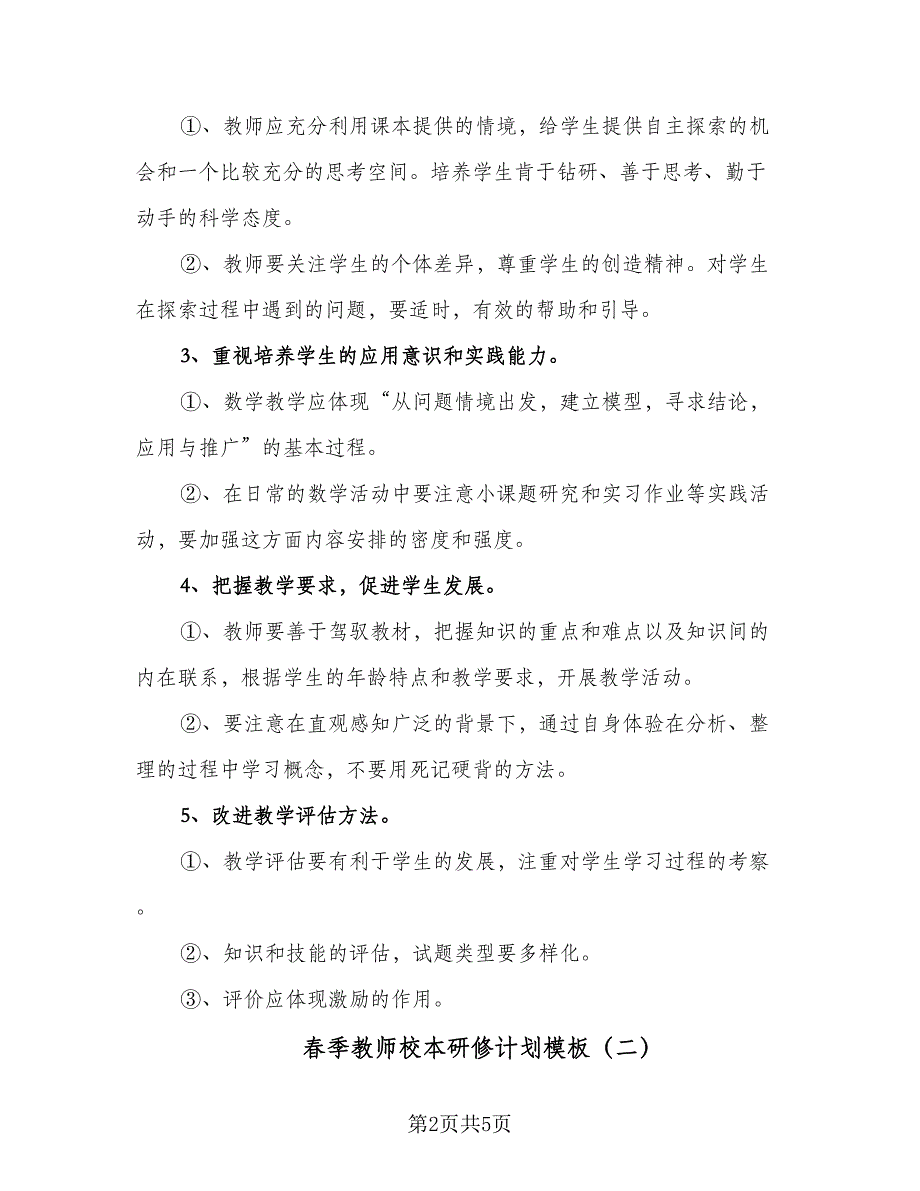 ①、教师应充分利用课本提供的情境，给学生提供自主探索的机
会和一个比较充分的思考空间。培养学生肯于钻研、善于思考、勤于
动手的科学态度。
②、教师要关注学生的个体差异，尊重学生的创造精神。对学生
在探索过程中遇到的问题，要适时，有效的帮助和引导。
3、重视培养学生的应用意识和实践能力。
①、数学教学应体现“从问题情境出发，建立模型，寻求结论，
应用与推广”的基本过程。
②、在日常的数学活动中要注意小课题研究和实习作业等实践活
动，要加强这方面内容安排的密度和强度。
4、把握教学要求，促进学生发展。
①、教师要善于驾驭教材，把握知识的重点和难点以及知识间的
内在联系，根据学生的年龄特点和教学要求，开展教学活动。
②、要注意在直观感知广泛的背景下，通过自身体验在分析、整
理的过程中学习概念，不要用死记硬背的方法。
5、改进教学评估方法。
①、教学评估要有利于学生的发展，注重对学生学习过程的考察
。
②、知识和技能的评估，试题类型要多样化。
③、评价应体现激励的作用。
春季教师校本研修计划模板（二）
第2页共5页